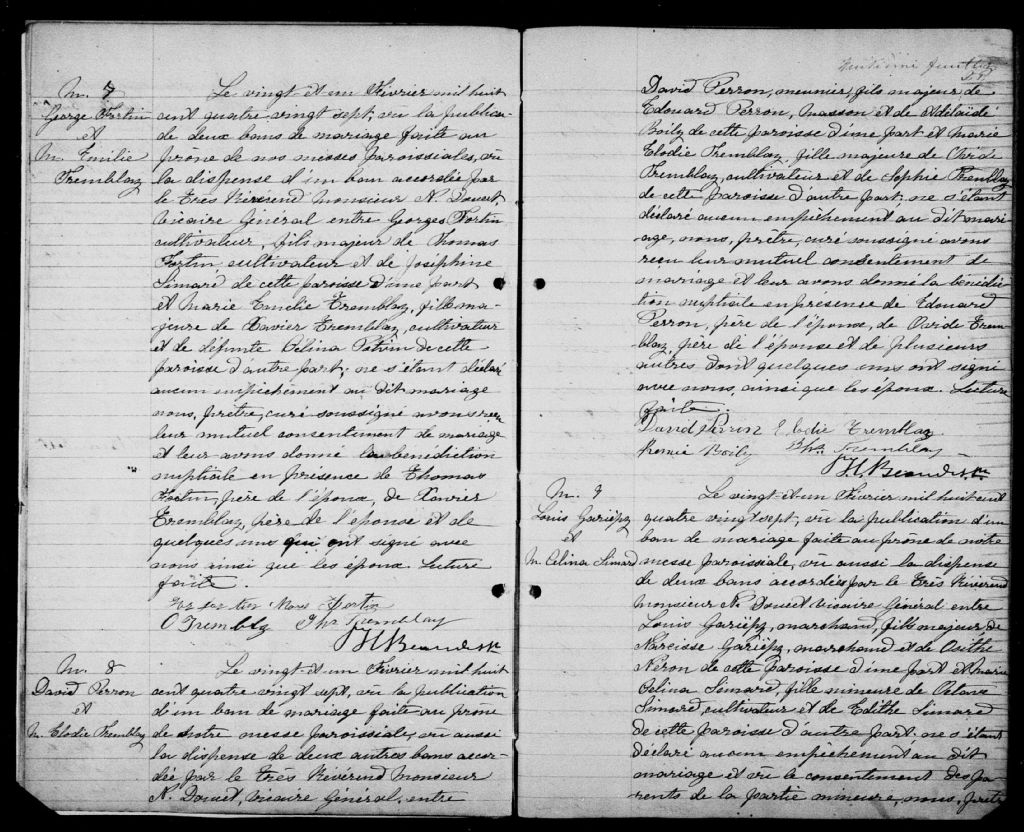 M. 7
George Fortin
et
M. Emilie
Tremblay
Le vingt-et-un Février mil huit
cent quatre vingt sept, vu la publica-
de deux bans de mariage faite au
prône de nos messes paroissiales, vu
la dispense d'un ban accordée par
le Très Révérend Monsieur N. Doucet
Vicaire Général entre Georges Fortin
cultivateur, fils majeur de Thomas
Fortin cultivateur et de Joséphine
Simard de cette paroisse d'une part
et Marie Emelie Tremblay, fille ma-
jeure de Xavier Tremblay, cultivateur
et de défunte Célina Potvin de cette
paroisse d'autre part; ne s'étant déclaré
aucun empêchement au dit mariage
nous, prêtre, curé soussigné avons reçu
leur mutuel consentement de mariage
et leur avons donné la bénédiction
nuptiale en présence de Thomas
Fortin, père de l'époux, de Xavier
Tremblay, père de l'épouse et de
quelques uns qui ont signé avec
nous ainsi que les époux. Lecture
faite.
Fortin
O Tremblay Ths Tremblay
M. 8
David Perron
et
M. Elodie Tremblay
Le vingt-et-un Février mil huit
cent quatre vingt sept, vu la publication
d'un ban de mariage faite au prône
de notre messe paroissiale, vu aussi
la dispense de deux autres bans accor-
dée par le très Révérend Monsieur
N. Doucet, Vicaire Général, entre
David Perron, meunier, fils majeur de
Edouard Perron, masson et de Adélaïde
Boily de cette paroisse d'une part et Marie
Elodie Tremblay, fille majeure de Ovide
Tremblay, cultivateur et de Sophie Tremblay
de cette paroisse d'autre part; ne s'étant
déclaré aucun empêchement au dit mari-
age, nous, prêtre, curé soussigné avons
reçu leur mutuel consentement de
mariage et leur avons donné la bénédic-
tion nuptiale en présence de Edouard
Perron, père de l'époux, de Ovide Trem-
blay, père de l'épouse et de plusieurs
autres dont quelques uns ont signé
avec nous, ainsi que les époux. Lecture
faite.
David Perron Elodie Tremblay
Boily Tremblay
M. 9
Louis Gariépy
et
M. Célina Simard
Le vingt-et-un Février mil huit cent
quatre vingt sept, vu la publication d'un
ban de mariage faite au prône de notre
messe paroissiale, vu aussi la dispense
de deux bans accordés par le Très Révérend
Monsieur N. Doucet Vicaire Général entre
Louis Gariépy, marchand, fils majeur de
Narcisse Gariépy, marchand et de Osithe
Néron de cette paroisse d'une part et Marie
Célina Simard, fille mineure de Octave
Simard, cultivateur et de Edithe Simard
de cette paroisse d'autre part; ne s'étant
déclaré aucun empêchement au dit
mariage et vu le consentement des pa-
rents de la partie mineure, nous, prêtre